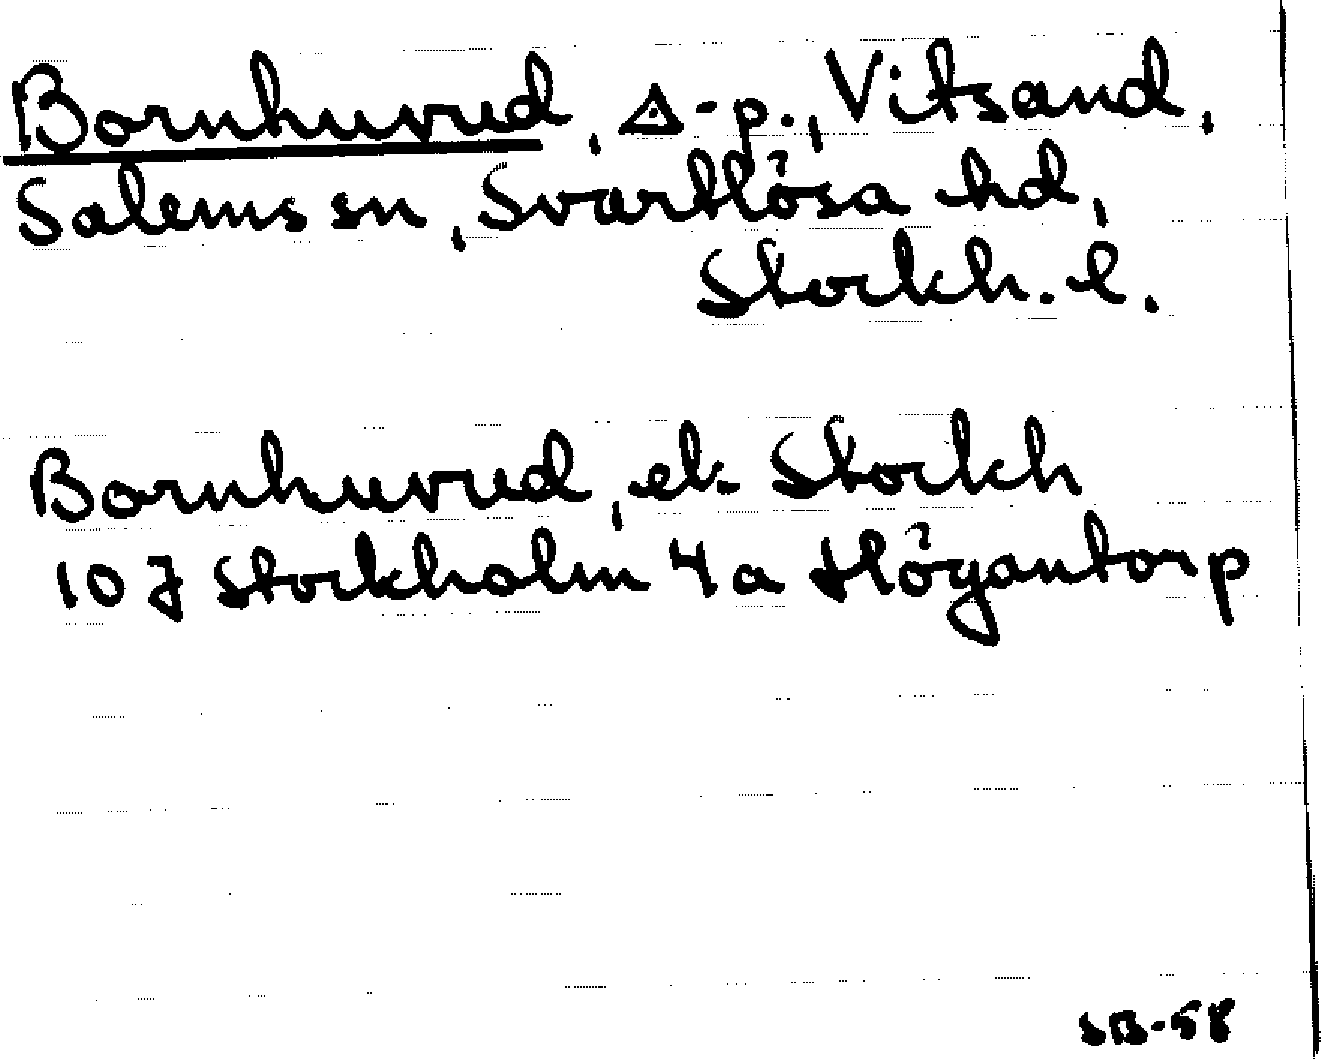 Bornhuvud, △-p., Vitsand,
Salems sn, Svartlösa hd,
Stockh. l.
Bornhuvud, ek. Stockh
10 J Stockholm 4a Högantorp
SB-58